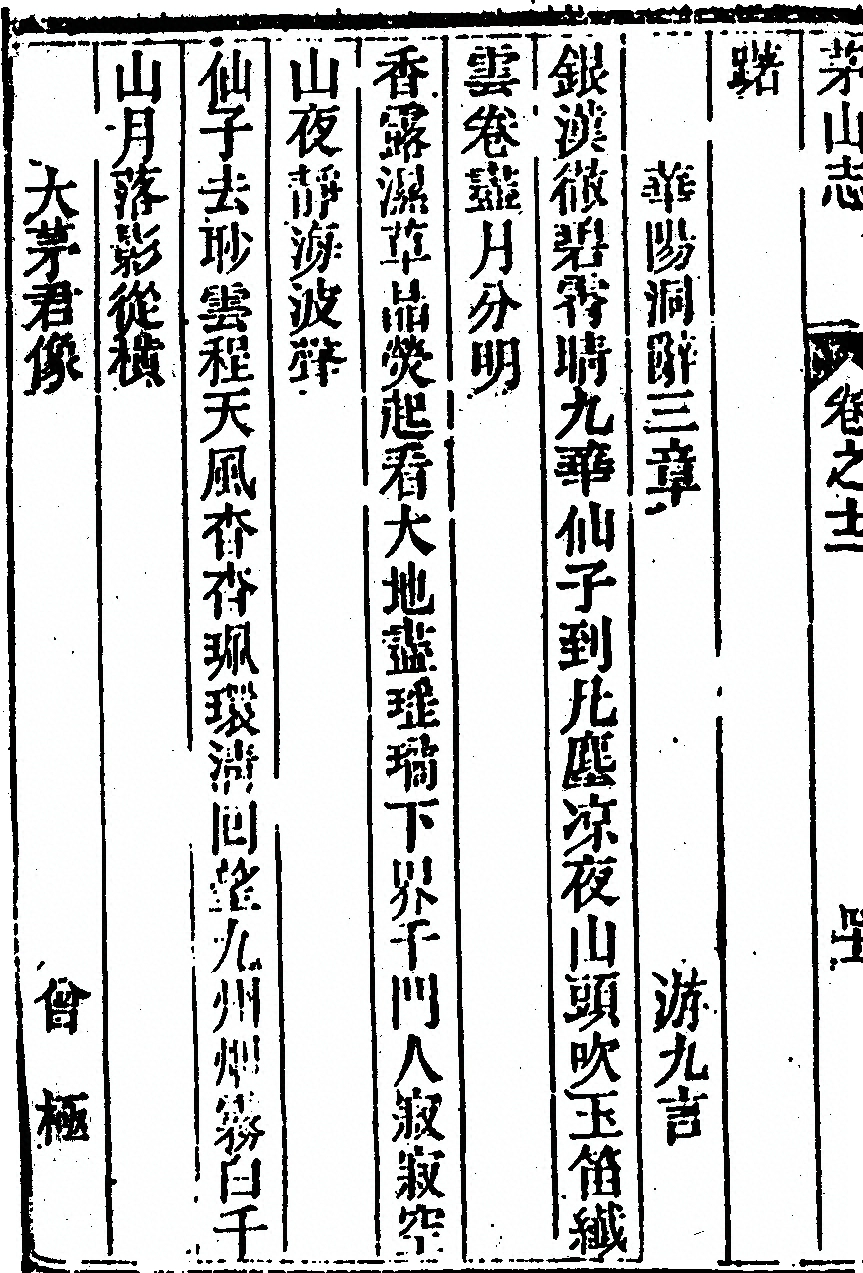 茅山志 卷之十一
踞
華陽洞辭三章 游九言
銀漢微碧霄晴九華仙子到此塵凉夜山頭吹玉笛纖
雲卷盡月分明
香露濕草晶熒起看大地盡瑤瑤下界千門人寂寂空
山夜靜海波聲
仙子去眇雲程天風杳杳珮環清回望九州烟霧白千
山月落影從橫
大茅君像 曾極